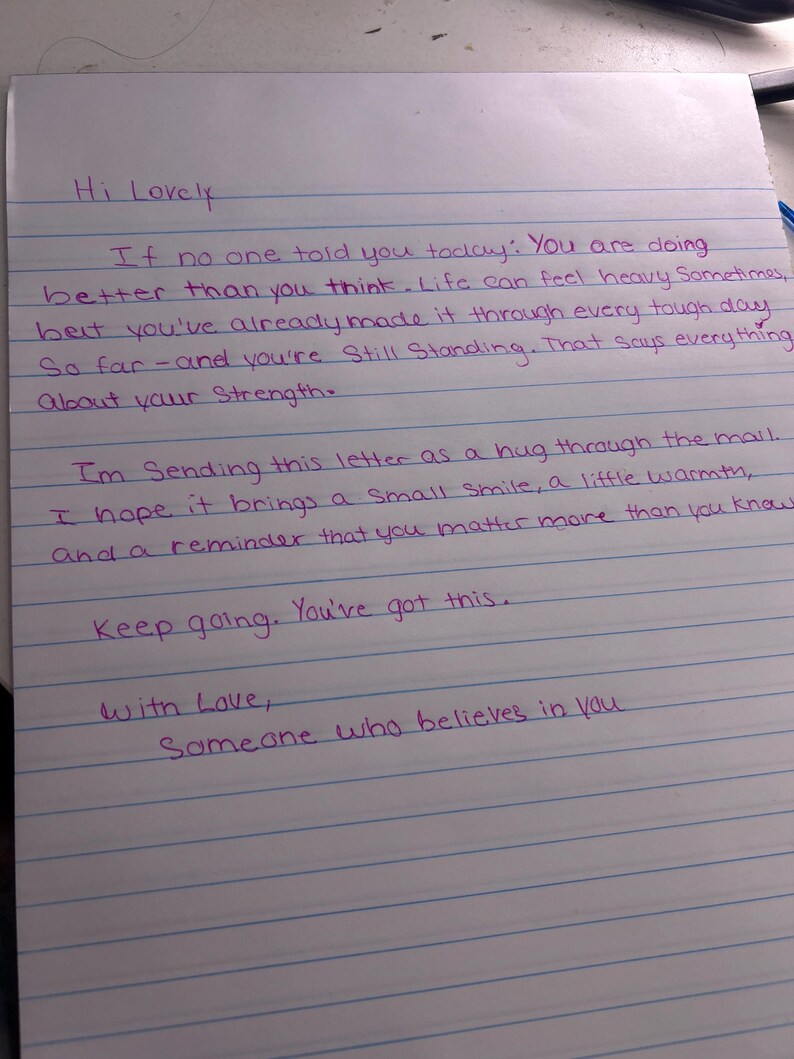 Hi Lovely
If no one told you today: You are doing
better than you think. Life can feel heavy Sometimes,
but you've already made it through every tough day
So far - and you're Still Standing. That says everything
about your Strength.
Im Sending this letter as a hug through the mail.
I hope it brings a small smile, a little warmth,
and a reminder that you matter more than you know
Keep going. You've got this.
With Love,
Someone who believes in you